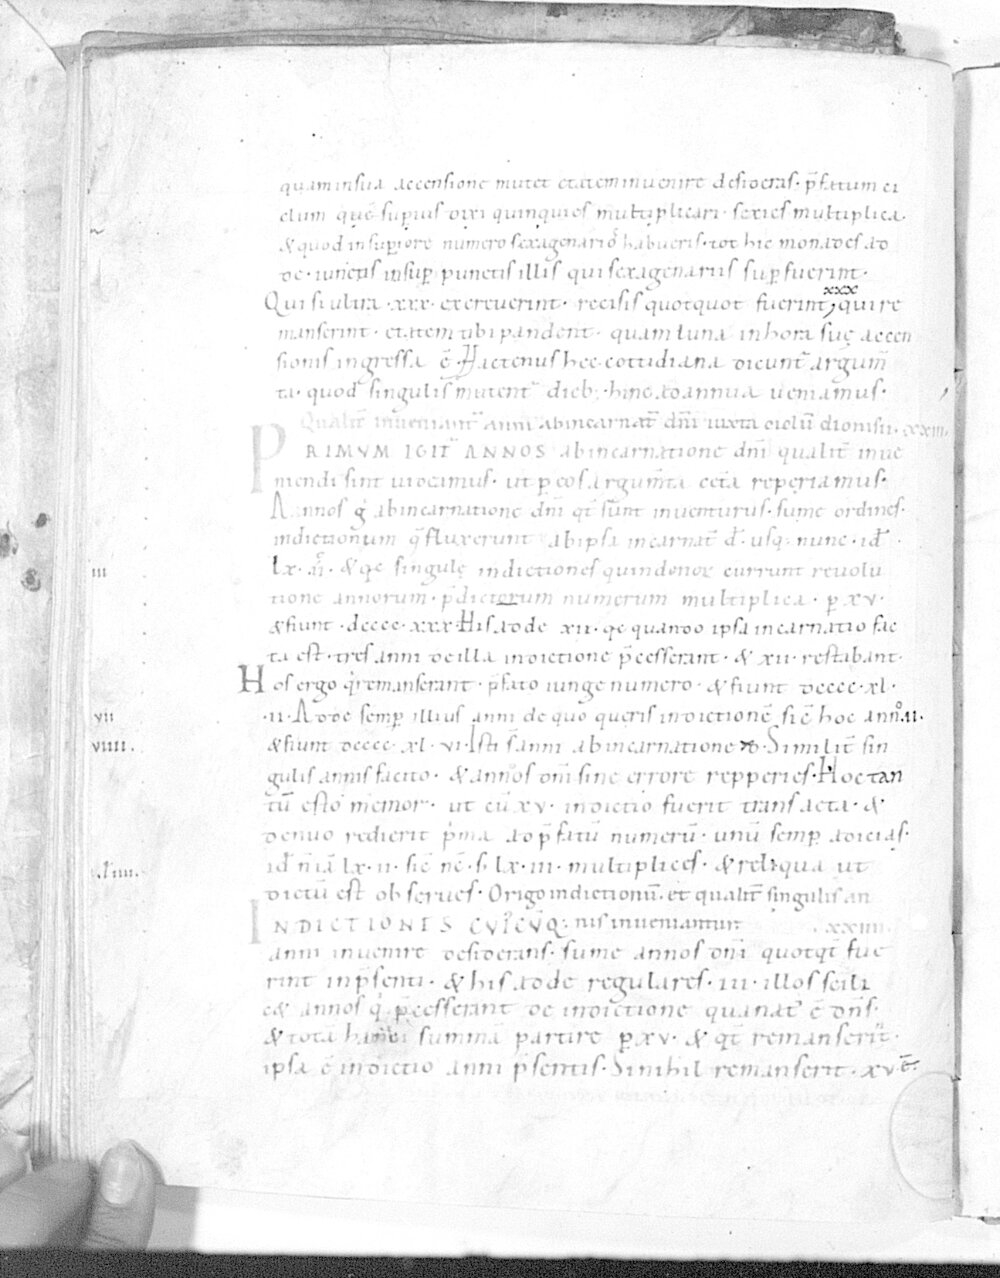 quam in sua accensione mutet etatem invenire desideras· p̄fatum ci
clum quē supius dixi quinquies multiplicari· sexies multiplica·
&quod in supiore numero sexagenario habueris· tot hic monades ad
de· iunctis insup punctis illis qui sexagenariis sup fuerint·
Qui si ultra ·xxx· excreverint· recisis quotquot fuerint xxx, qui re
manserint· etatem tibi pandent· quam luna in hora suę accen
sionis ingressa ē· Hactenus hec cottidiana dicunt̄ argum̄
ta· quod singulis mutent̄ dieb; hinc ad annua veniamus·
Qualit̄ inveniant̄ anni ab incarnat̄ dn̄i iuxta ciclū dionisii· xxiii·
PRIMVM IGIT̄ ANNOS ab incarnatione dn̄i qualit̄ inve
niendi sint videamus· ut p eos argum̄ta cęta reperiamus·
Annos g̊ ab incarnatione dn̄i qt̄ sunt inventurus· sume ordines·
indictionum q̄ fluxerunt ab ipsa incarnat̄ d̄· usq; nunc· id̄·
iii
lx·ii· & qe singulę indictiones quindenos currunt revolu
tione annorum· p̄dictorum numerum multiplica· p xv·
&fiunt· dcccc·xxx· His adde xii· qe quando ipsa incarnatio fac
ta est· tres anni de illa indictione p̄cesserant· & xii· restabant·
Hos ergo q̇ remanserant· p̄fato iunge numero· &fiunt dcccc·xl·
vii
·ii· Adde semp illius anni de quo queris indictionē sic̄ hoc anno·ii·
viiii·
&fiunt dcccc·xl·vi· Isti s̄ anni ab incarnatione Similit̄ sin
gulis annis facito· & annos dn̄i sine errore repperies· Hoc tan
tū esto memor· ut cū xv· indictio fuerit transacta· &
denuo redierit pⁱma ad p̄fatū numerū· unū semp adicias·
id̄ lx·ii· sic̄ s; lx·iii· multiplices· &reliqua ut
dictū est observes· Origo indictionū· et qualit̄ singulis an
INDICTIONIS CVIVQ; nis inveniantur ·xxiiii·
anni invenire desiderans· sume annos dn̄i quotqt̄ fue
rint in p̄senti· & his adde regulares· iii· illos scili
c& annos qⁱ p̄cesserant de indictione qua nat̄ ē dn̄s·
& tota summā partire p xv· & qt̄ remanserit·
ipsa ē indictio anni p̄sentis· Si nihil remanserit· xv ē·